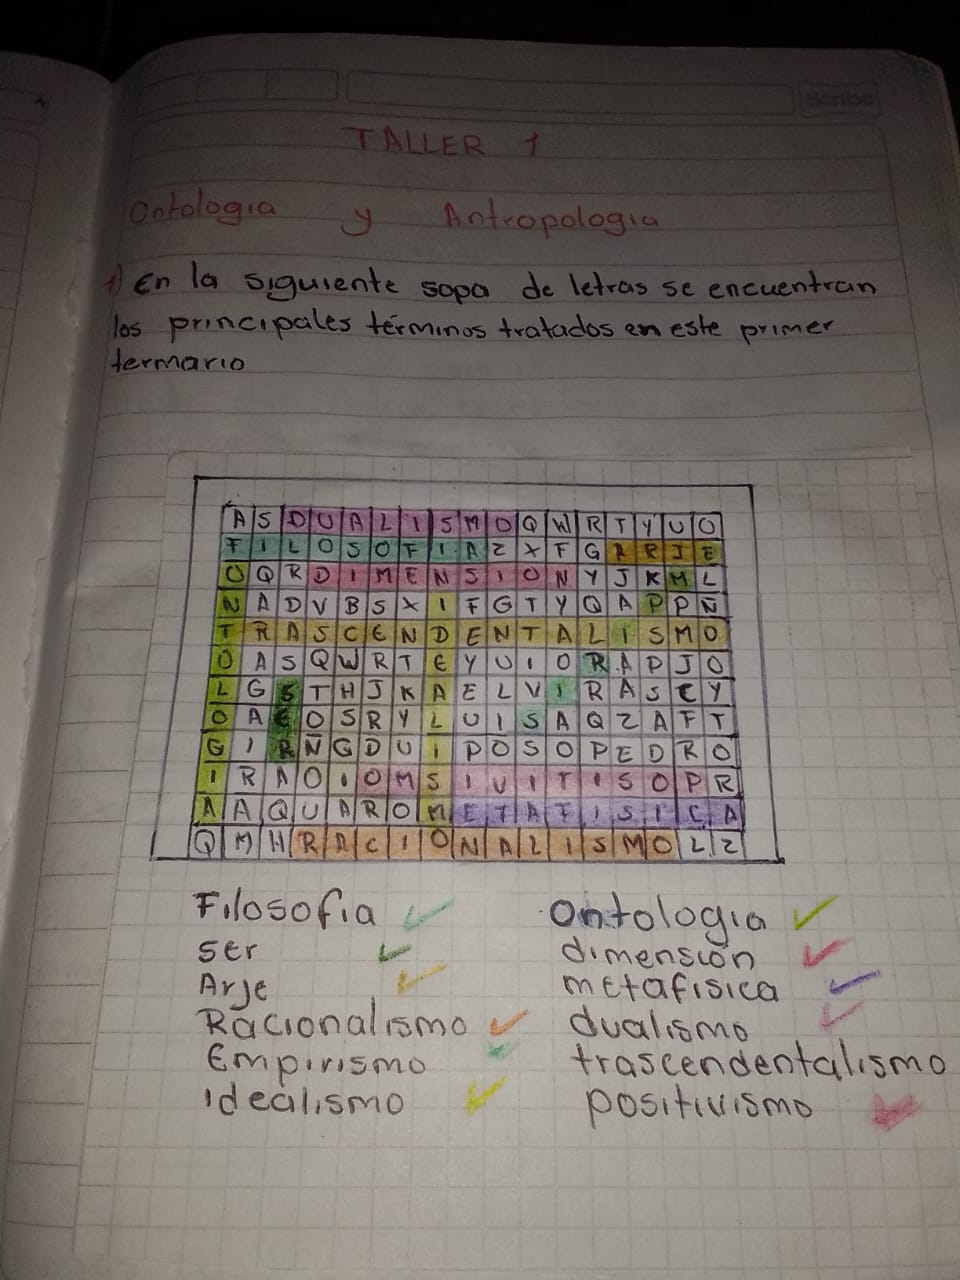 Scribe
TALLER 1
Ontologia y Antropologia
1) En la siguiente sopa de letras se encuentran
los principales términos tratados en este primer
termario
A S D U A L I S M O Q W R T Y U O
F I L O S O F I A Z X F G A R J E
O Q R D I M E N S I O N Y J K M L
N A D V B S X I F G T Y Q A P P Ñ
T R A S C E N D E N T A L I S M O
O A S Q W R T E Y U I O R A P J O
L G S T H J K A E L V I R A S E Y
O A E O S R Y L U I S A Q Z A F T
G I R Ñ G D U I P O S O P E D R O
I R A O I O M S I V I T I S O P R
A A Q U A R O M E T A F I S I C A
Q M H R A C I O N A L I S M O L Z
Filosofia Ontologia
ser dimensión
Arje metafisica
Racionalismo dualismo
Empirismo trascendentalismo
idealismo positivismo